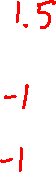 1.5
-1
-1